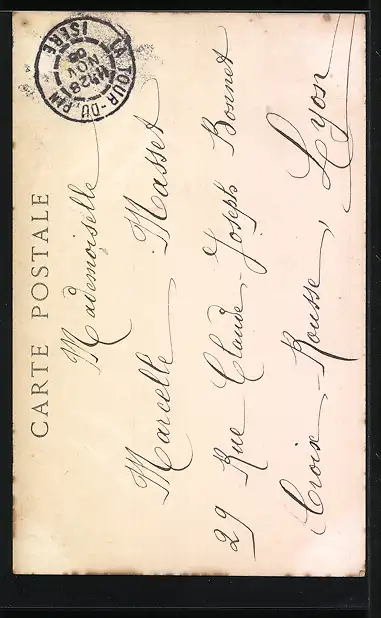 CARTE POSTALE
LA TOUR-DU-PIN
ISÈRE
28
NOV
Mademoiselle
Marcelle Masset
29 Rue Claude-Joseph Bonnet
Croix-Rousse, Lyon